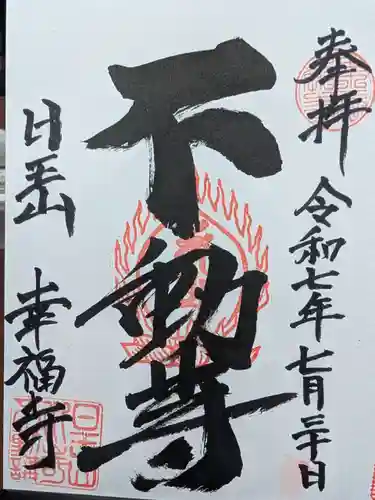 奉拝
令和七年七月三十日
不動尊
日吉山
幸福寺